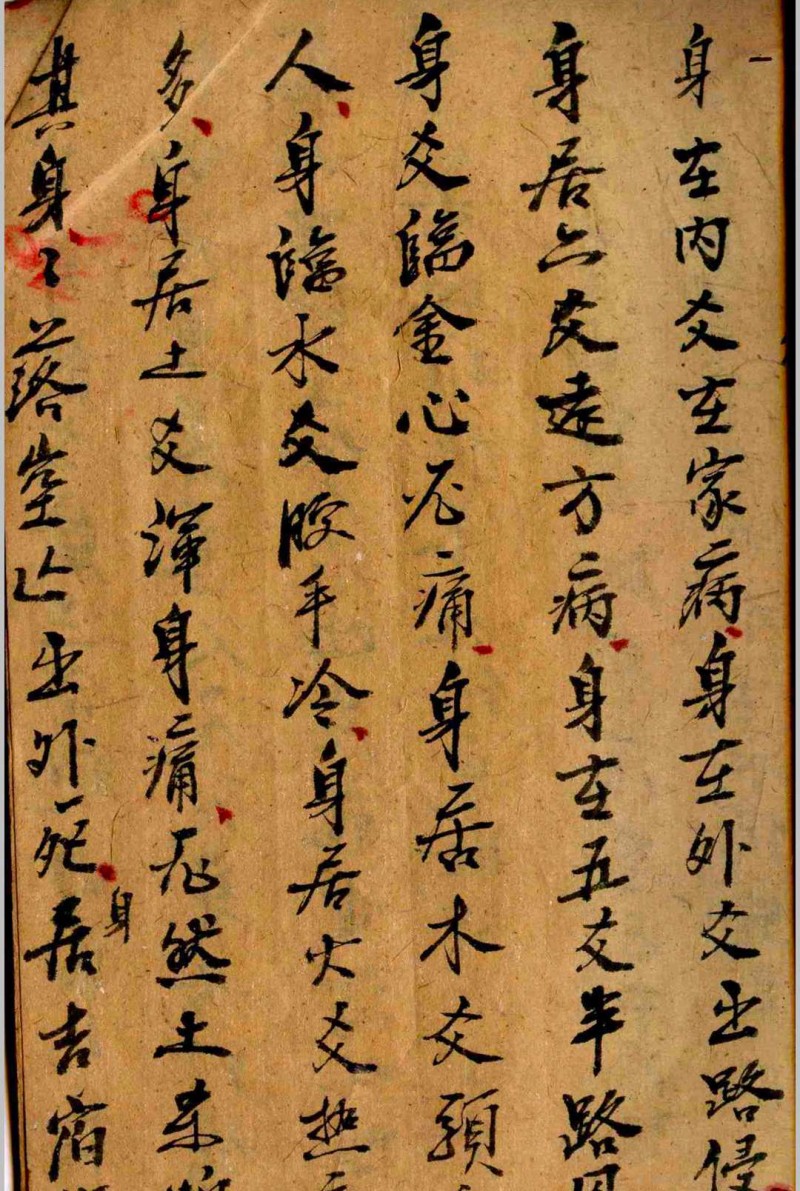 身在内爻在家病身在外爻出路侵
身居六爻远方病身在五爻半路
身爻临金心必痛身居木爻頭
人身临水爻腰手冷身居火爻热
多身居土爻渾身痛忽然土来
其身〻落空亡出外死身居吉宿